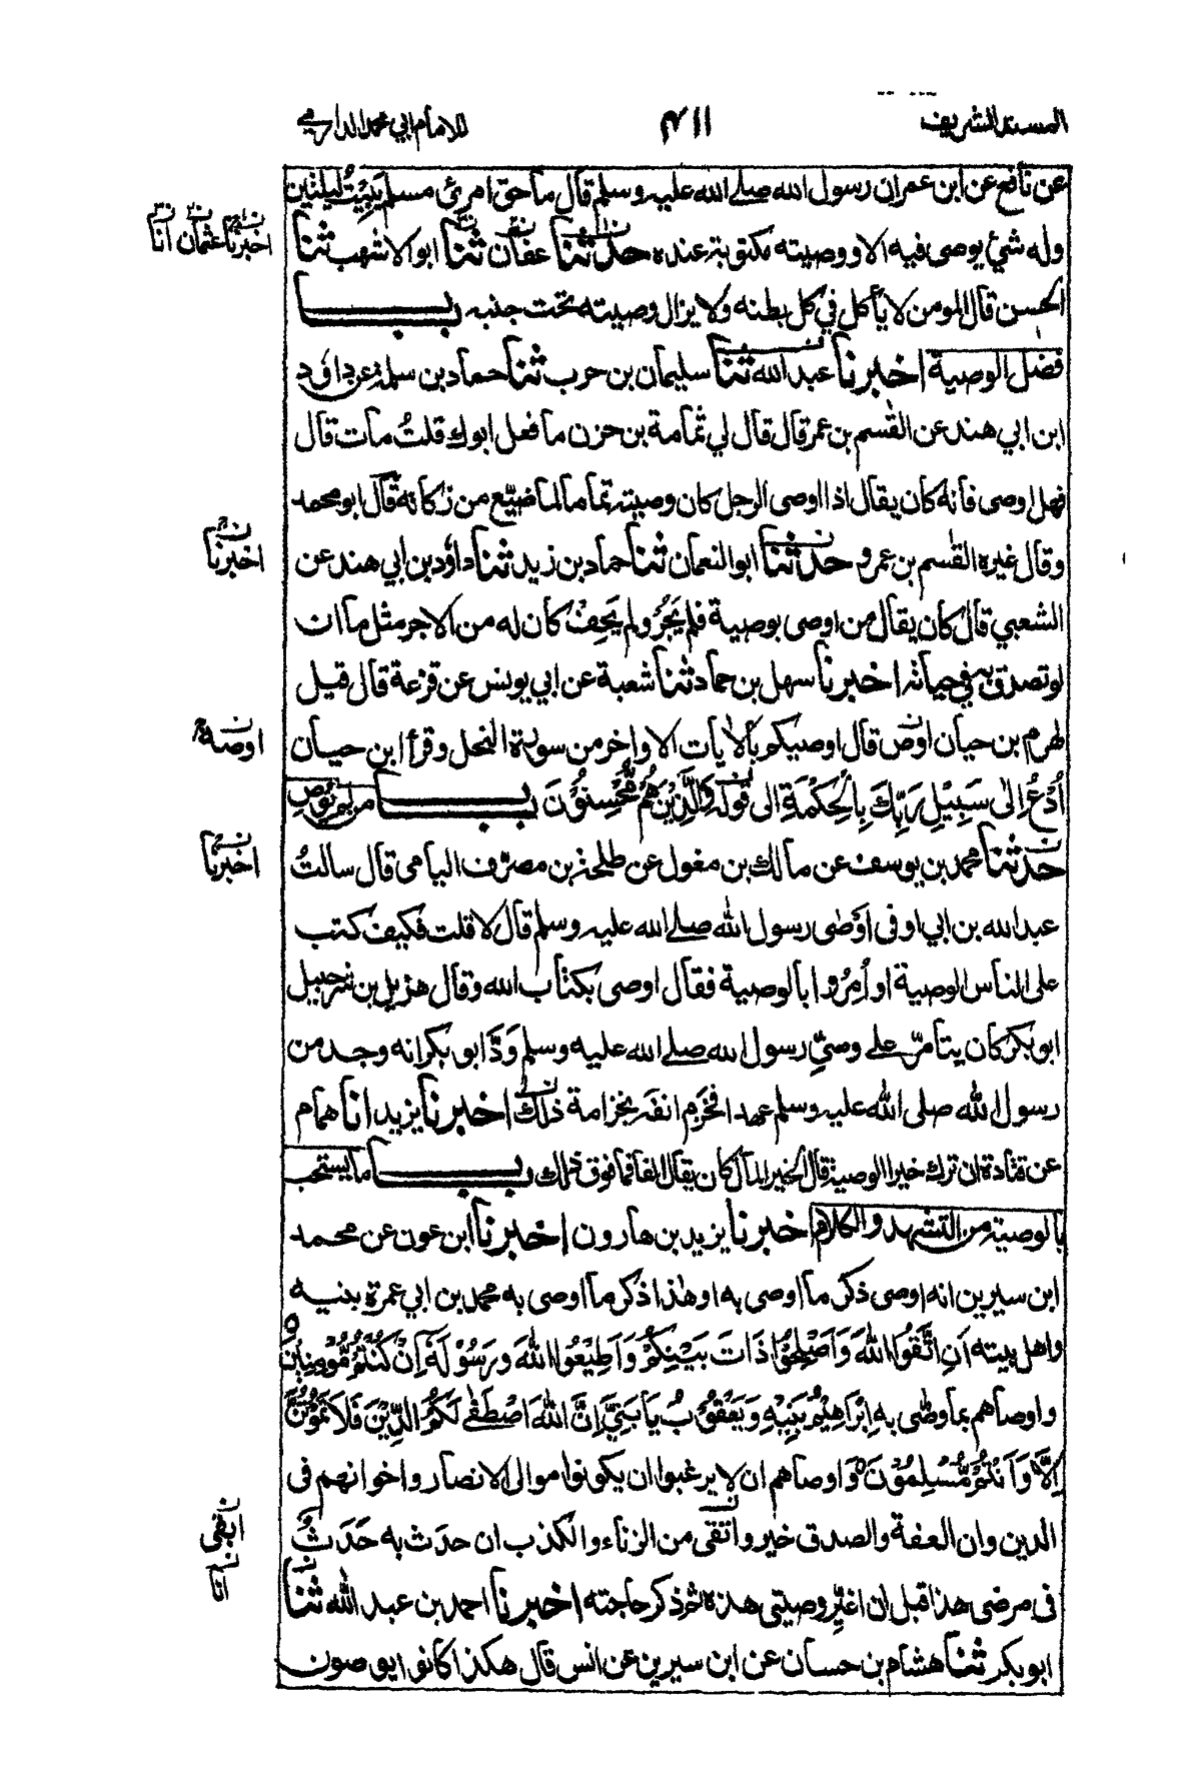 المسند الشريف
٤١١
للامام ابي محمد الدارمي
عن نافع عن ابن عمر ان رسول الله صلے الله عليه وسلم قال ما حق امرئ مسلم يَبِيْتُ ليلتين
وله شئ يوصى فيه الا ووصيته مكتوبة عنده حدثنا عفان ثنا ابو الاشهب ثنا
اخبرنا عثمان انا
الحسن قال المومن لا يأكل في كل بطنه ولا يزال وصيته تحت جنبه باب
فضل الوصية اخبرنا عبد الله ثنا سليمان بن حرب ثنا حماد بن سلمة عن داؤد
ابن ابي هند عن القٰسم بن عمر قال قال لي ثمامة بن حزن ما فعل ابوك قلتُ مات قال
فهل اوصى فانه كان يقال اذا اوصى الرجل كان وصيته تماما لما ضيّع من زكاته قال ابو محمد
وقال غيره القٰسم بن عمرو حدثنا ابو النعمان ثنا حماد بن زيد ثنا داؤد بن ابي هند عن
اخبرنا
الشعبي قال كان يقال من اوصى بوصية فلم يَجُرْ ولم يَحِفْ كان له من الاجر مثل ما ان
لو تصدق به في حياته اخبرنا سهل بن حماد ثنا شعبة عن ابي يونس عن قزعة قال قيل
لهرم بن حيان اوص قال اوصيكم بالاٰيات الاواخر من سورة النحل وقرأ ابن حيان
اوصه
اُدْعُ اِلٰى سَبِيْلِ رَبِّكَ بِالْحِكْمَةِ الى قوله وَالَّذِيْنَ هُمْ مُّحْسِنُوْنَ باب من لم يوص
حدثنا محمد بن يوسف عن مالك بن مغول عن طلحة بن مصرّف اليامى قال سالتُ
اخبرنا
عبد الله بن ابي اوفى اَوْصٰى رسول الله صلے الله عليه وسلم قال لا قلت فكيف كتب
على الناس الوصية او اُمِرُوا بالوصية فقال اوصى بكتاب الله وقال هزيل بن شرحبيل
ابو بكر كان يتأمّر علے وصيّ رسول الله صلے الله عليه وسلم وَدَّ ابو بكر انه وجد من
رسول الله صلى الله عليه وسلم عهدا فخزم انفه بخزامة ذلك اخبرنا يزيد انا همام
عن قتادة ان ترك خيرا الوصية قال الخير المال كان يقال الفا فما فوق ذلك باب ما يستحب
بالوصية من التشهد والكلام اخبرنا يزيد بن هارون اخبرنا ابن عون عن محمد
ابن سيرين انه اوصى ذكر ما اوصى به او هٰذا ذكر ما اوصى به محمد بن ابي عمرة بنيه
واهل بيته اَنِ اتَّقُوا اللهَ وَاَصْلِحُوْا ذَاتَ بَيْنِكُمْ وَاَطِيْعُوا اللهَ وَرَسُوْلَهٗ اِنْ كُنْتُمْ مُّؤْمِنِيْنَ
واوصاهم بما وصّى به اِبْرَاهِيْمُ بَنِيْهِ وَيَعْقُوْبُ يَا بَنِيَّ اِنَّ اللهَ اصْطَفٰى لَكُمُ الدِّيْنَ فَلَا تَمُوْتُنَّ
اِلَّا وَاَنْتُمْ مُّسْلِمُوْنَ وَاوصاهم ان لا يرغبوا ان يكونوا موالى الانصار واخوانهم فى
الدين وان العفة والصدق خير واتقى من الزناء والكذب ان حدث به حَدَثٌ
ابقى
فى مرضى هذا قبل ان اغيّر وصيتي هذه ثم ذكر حاجته اخبرنا احمد بن عبد الله ثنا
انا
ابو بكر ثنا هشام بن حسان عن ابن سيرين عن انس قال هكذا كانوا يوصون